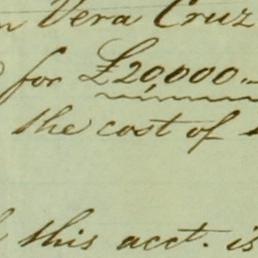 Vera Cruz
for £20,000
the cost of
this acct. is